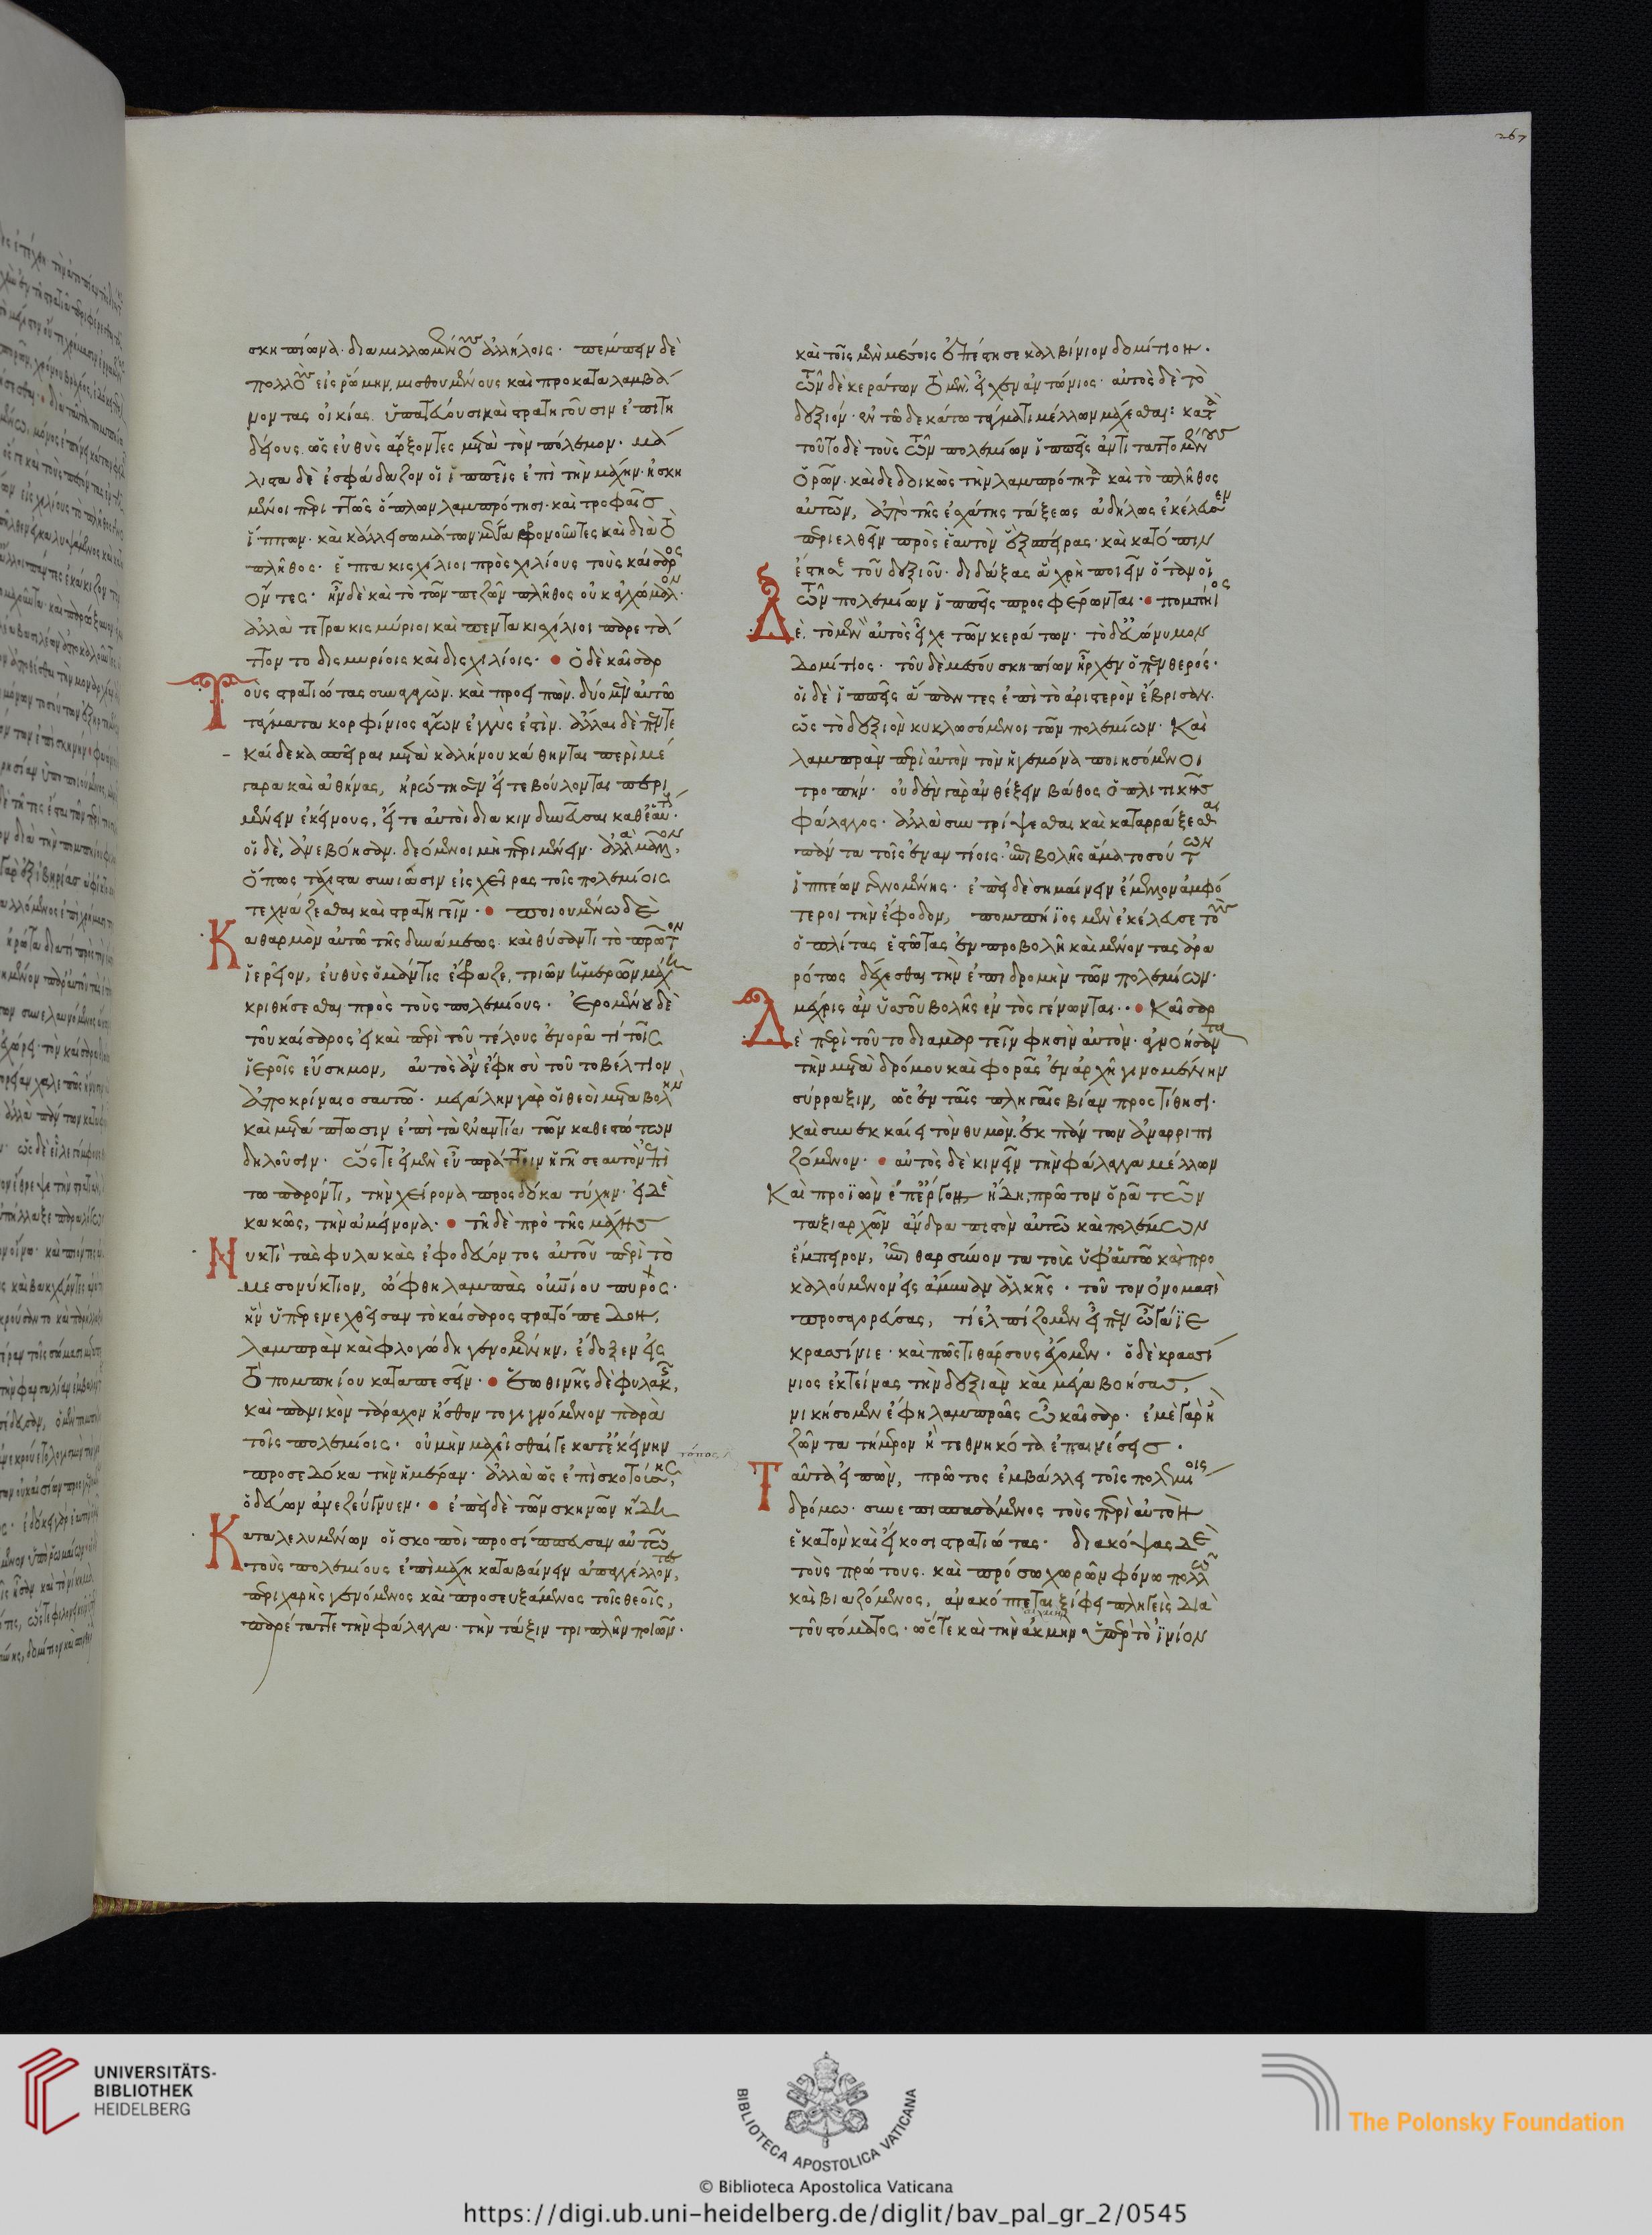 σκηπίωνα διαμιλλωμένους ἀλλήλοις. πέμπειν δὲ
πολλοὺς εἰς ῥώμην, μισθουμένους καὶ προκαταλαμβά
νοντας οἰκίας. ὑπατεύουσι καὶ στρατηγοῦσιν ἐπιτη
δείους. ὡς εὐθὺς ἄρξοντες μετὰ τὸν πόλεμον. μά
λιστα δὲ ἐσφάδαζον οἱ ἱππεῖς ἐπὶ τὴν μάχην. ἠσκη
μένοι περιττῶς ὅπλων λαμπρότησι. καὶ τροφαῖς
ἵππων. καὶ κάλλει σωμάτων. μέγα φρονοῦντες καὶ διὰ τὸ
πλῆθος. ἑπτακισχίλιοι πρὸς χιλίους τοὺς καίσαρος
ὄντες. ἦν δὲ καὶ τὸ τῶν πεζῶν πλῆθος οὐκ ἀγχώμαλον.
ἀλλὰ τετρακισμύριοι καὶ πεντακισχίλιοι παρετάτ
τοντο δισμυρίοις καὶ δισχιλίοις. ὁ δὲ καῖσαρ
Τοὺς στρατιώτας συναγαγὼν. καὶ προειπὼν. δύο μὲν αὐτῷ
τάγματα κορφίνιος ἄγων ἐγγὺς ἐστίν. ἄλλαι δὲ πεντε
καίδεκα σπεῖραι μετὰ καλήνου κάθηνται περὶ μέ
γαρα καὶ ἀθήνας, ἠρώτησεν εἴτε βούλονται περι
μένειν ἐκείνους, εἴτε αὐτοὶ διακινδυνεῦσαι καθ' ἑαυτούς.
οἱ δὲ, ἀνεβόησαν. δεόμενοι μὴ περιμένειν. ἀλλὰ μᾶλλον,
ὅπως τάχιστα συνίωσιν εἰς χεῖρας τοῖς πολεμίοις
τεχνάζεσθαι καὶ στρατηγεῖν. ποιουμένω δὲ
Καθαρμὸν αὐτῷ τῆς δυνάμεως. καὶ θύσαντι τὸ πρῶτον
ἱερεῖον, εὐθὺς ὁ μάντις ἔφραζε, τριῶν ἡμερῶν μάχῃ
κριθήσεσθαι πρὸς τοὺς πολεμίους. ἐρομένου δὲ
τοῦ καίσαρος εἰ καὶ περὶ τοῦ τέλους ἐνορᾷ τί τοῖς
ἱεροῖς εὔσημον, αὐτὸς ἂν ἔφη σὺ τοῦτο βέλτιον
ἀποκρίναιο σαυτῷ. μεγάλην γὰρ οἱ θεοὶ μεταβολὴν
καὶ μετάπτωσιν ἐπὶ τὰ ἐναντία τῶν καθεστώτων
δηλοῦσιν. ὥστε εἰ μὲν εὖ πράττειν ἡγῇ σεαυτὸν ἐπὶ
τῷ παρόντι, τὴν χείρονα προσδόκα τύχην. εἰ δὲ
κακῶς, τὴν ἀμείνονα. τῇ δὲ πρὸ τῆς μάχης
Νυκτὶ τὰς φυλακὰς ἐφοδεύοντος αὐτοῦ περὶ τὸ
μεσονύκτιον, ὤφθη λαμπὰς οὐρανίου πυρὸς.
ἣν ὑπερενεχθεῖσαν τὸ καίσαρος στρατόπεδον,
λαμπρὰν καὶ φλογώδη γενομένην, ἔδοξεν εἰς
τὸ πομπηίου καταπεσεῖν. ἑωθινῆς δὲ φυλακῆς,
καὶ πανικὸν τάραχον ᾔσθοντο γιγνόμενον παρὰ
τοῖς πολεμίοις. οὐ μὴν μαχεῖσθαί γε κατ' ἐκείνην
προσεδόκα τὴν ἡμέραν. ἀλλὰ ὡς ἐπὶ σκοτούσης,
ὁδεύων ἀνεζεύγνυεν. ἐπεὶ δὲ τῶν σκηνῶν ἤδη
Καταλελυμένων οἱ σκοποὶ προσίππευσαν αὐτῷ
τοὺς πολεμίους ἐπὶ μάχῃ καταβαίνειν ἀπαγγέλλοντες,
περιχαρὴς γενόμενος καὶ προσευξάμενος τοῖς θεοῖς,
παρέταττε τὴν φάλαγγα. τὴν τάξιν τριπλῆν ποιῶν.
267
καὶ τοῖς μὲν μέσοις ἐπέστησε καλβίνιον δομίτιον.
τῶν δὲ κεράτων τὸ μὲν, εἶχεν ἀντώνιος. αὐτὸς δὲ τὸ
δεξιόν. ἐν τῷ δεκάτῳ τάγματι μέλλων μάχεσθαι: κατὰ
τοῦτο δὲ τοὺς τῶν πολεμίων ἱππεῖς ἀντιταττομένους
ὁρῶν. καὶ δεδοικὼς τὴν λαμπρότητα καὶ τὸ πλῆθος
αὐτῶν, ἀπὸ τῆς ἐσχάτης τάξεως ἀδήλως ἐκέλευσεν
περιελθεῖν πρὸς ἑαυτὸν ἓξ σπείρας. καὶ κατόπιν
ἔστησε τοῦ δεξιοῦ. διδάξας ἃ χρὴ ποιεῖν ὅταν οἱ
τῶν πολεμίων ἱππεῖς προσφέρωνται. πομπήιος
Δὲ. τὸ μὲν αὐτὸς εἶχε τῶν κεράτων. τὸ δ' εὐώνυμον
δομίτιος. τοῦ δὲ μέσου σκηπίων ἦρχεν ὁ πενθερός.
οἱ δὲ ἱππεῖς ἅπαντες ἐπὶ τὸ ἀριστερὸν ἔβρισαν.
ὡς τὸ δεξιὸν κυκλωσόμενοι τῶν πολεμίων. καὶ
λαμπρὰν περὶ αὐτὸν τὸν ἡγεμόνα ποιησόμενοι
τροπήν. οὐδὲν γὰρ ἀνθέξειν βάθος ὁπλιτικῆς
φάλαγγος. ἀλλὰ συντρίψεσθαι καὶ καταρράξεσθαι
πάντα τοῖς ἐναντίοις. ἐπιβολῆς ἅμα τοσούτων
ἱππέων γενομένης. ἐπεὶ δὲ σημαίνειν ἔμελλον ἀμφό
τεροι τὴν ἔφοδον, πομπήϊος μὲν ἐκέλευσε τοὺς
ὁπλίτας ἑστῶτας ἐν προβολῇ καὶ μένοντας ἀρα
ρότως δέχεσθαι τὴν ἐπιδρομὴν τῶν πολεμίων.
μέχρις ἂν ὑσσοῦ βολῆς ἐντὸς γένωνται. καῖσαρ
Δὲ περὶ τοῦτο διαμαρτεῖν φησὶν αὐτὸν. ἀγνοήσαντα
τὴν μετὰ δρόμου καὶ φορᾶς ἐν ἀρχῇ γινομένην
σύρραξιν, ὡς ἐν ταῖς πληγαῖς βίαν προστίθησι.
καὶ συνεκκαίει τὸν θυμὸν. ἐκ πάντων ἀναρριπι
ζόμενον. αὐτὸς δὲ κινεῖν τὴν φάλαγγα μέλλων
Καὶ προϊὼν ἐπ' ἔργον ἤδη, πρῶτον ὁρᾷ τῶν
ταξιαρχῶν ἄνδρα πιστὸν αὐτῷ καὶ πολέμων
ἔμπειρον, ἐπιθαρσύνοντα τοὺς ὑφ' αὑτῷ καὶ προ
καλούμενον εἰς ἅμιλλαν ἀλκῆς. τοῦτον ὀνομαστὶ
προσαγορεύσας, τί ἐλπίζομεν εἶπεν ὦ γάϊε
κρασσίνιε. καὶ πῶς τι θάρσους ἔχομεν. ὁ δὲ κρασσί
νιος ἐκτείνας τὴν δεξιὰν καὶ μέγα βοήσας,
νικήσομεν ἔφη λαμπρῶς ὦ καῖσαρ. ἐμὲ γὰρ ἢ
ζῶντα τήμερον ἢ τεθνηκότα ἐπαινέσεις.
Ταῦτα εἰπὼν, πρῶτος ἐμβάλλει τοῖς πολεμίοις
δρόμῳ. συνεπισπασάμενος τοὺς περὶ αὐτὸν
ἑκατὸν καὶ εἴκοσι στρατιώτας. διακόψας δὲ
τοὺς πρώτους. καὶ πρόσω χωρῶν φόνῳ πολλῷ
καὶ βιαζόμενος, ἀνακόπτεται ξίφει πληγεὶς διὰ
τοῦ στόματος. ὥστε καὶ τὴν ἀκμὴν ὑπὲρ τὸ ἰνίον
UNIVERSITÄTS-
BIBLIOTHEK
HEIDELBERG
BIBLIOTECA APOSTOLICA VATICANA
© Biblioteca Apostolica Vaticana
The Polonsky Foundation
https://digi.ub.uni-heidelberg.de/diglit/bav_pal_gr_2/0545